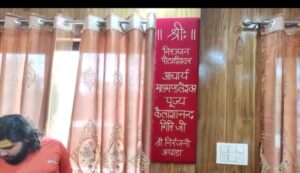 ॥ श्रीः ॥
निरंजन
पीठाधीश्वर
आचार्य
महामण्डलेश्वर
पूज्य
कैलाशानन्द
गिरि जी
श्री निरंजनी
अखाड़ा